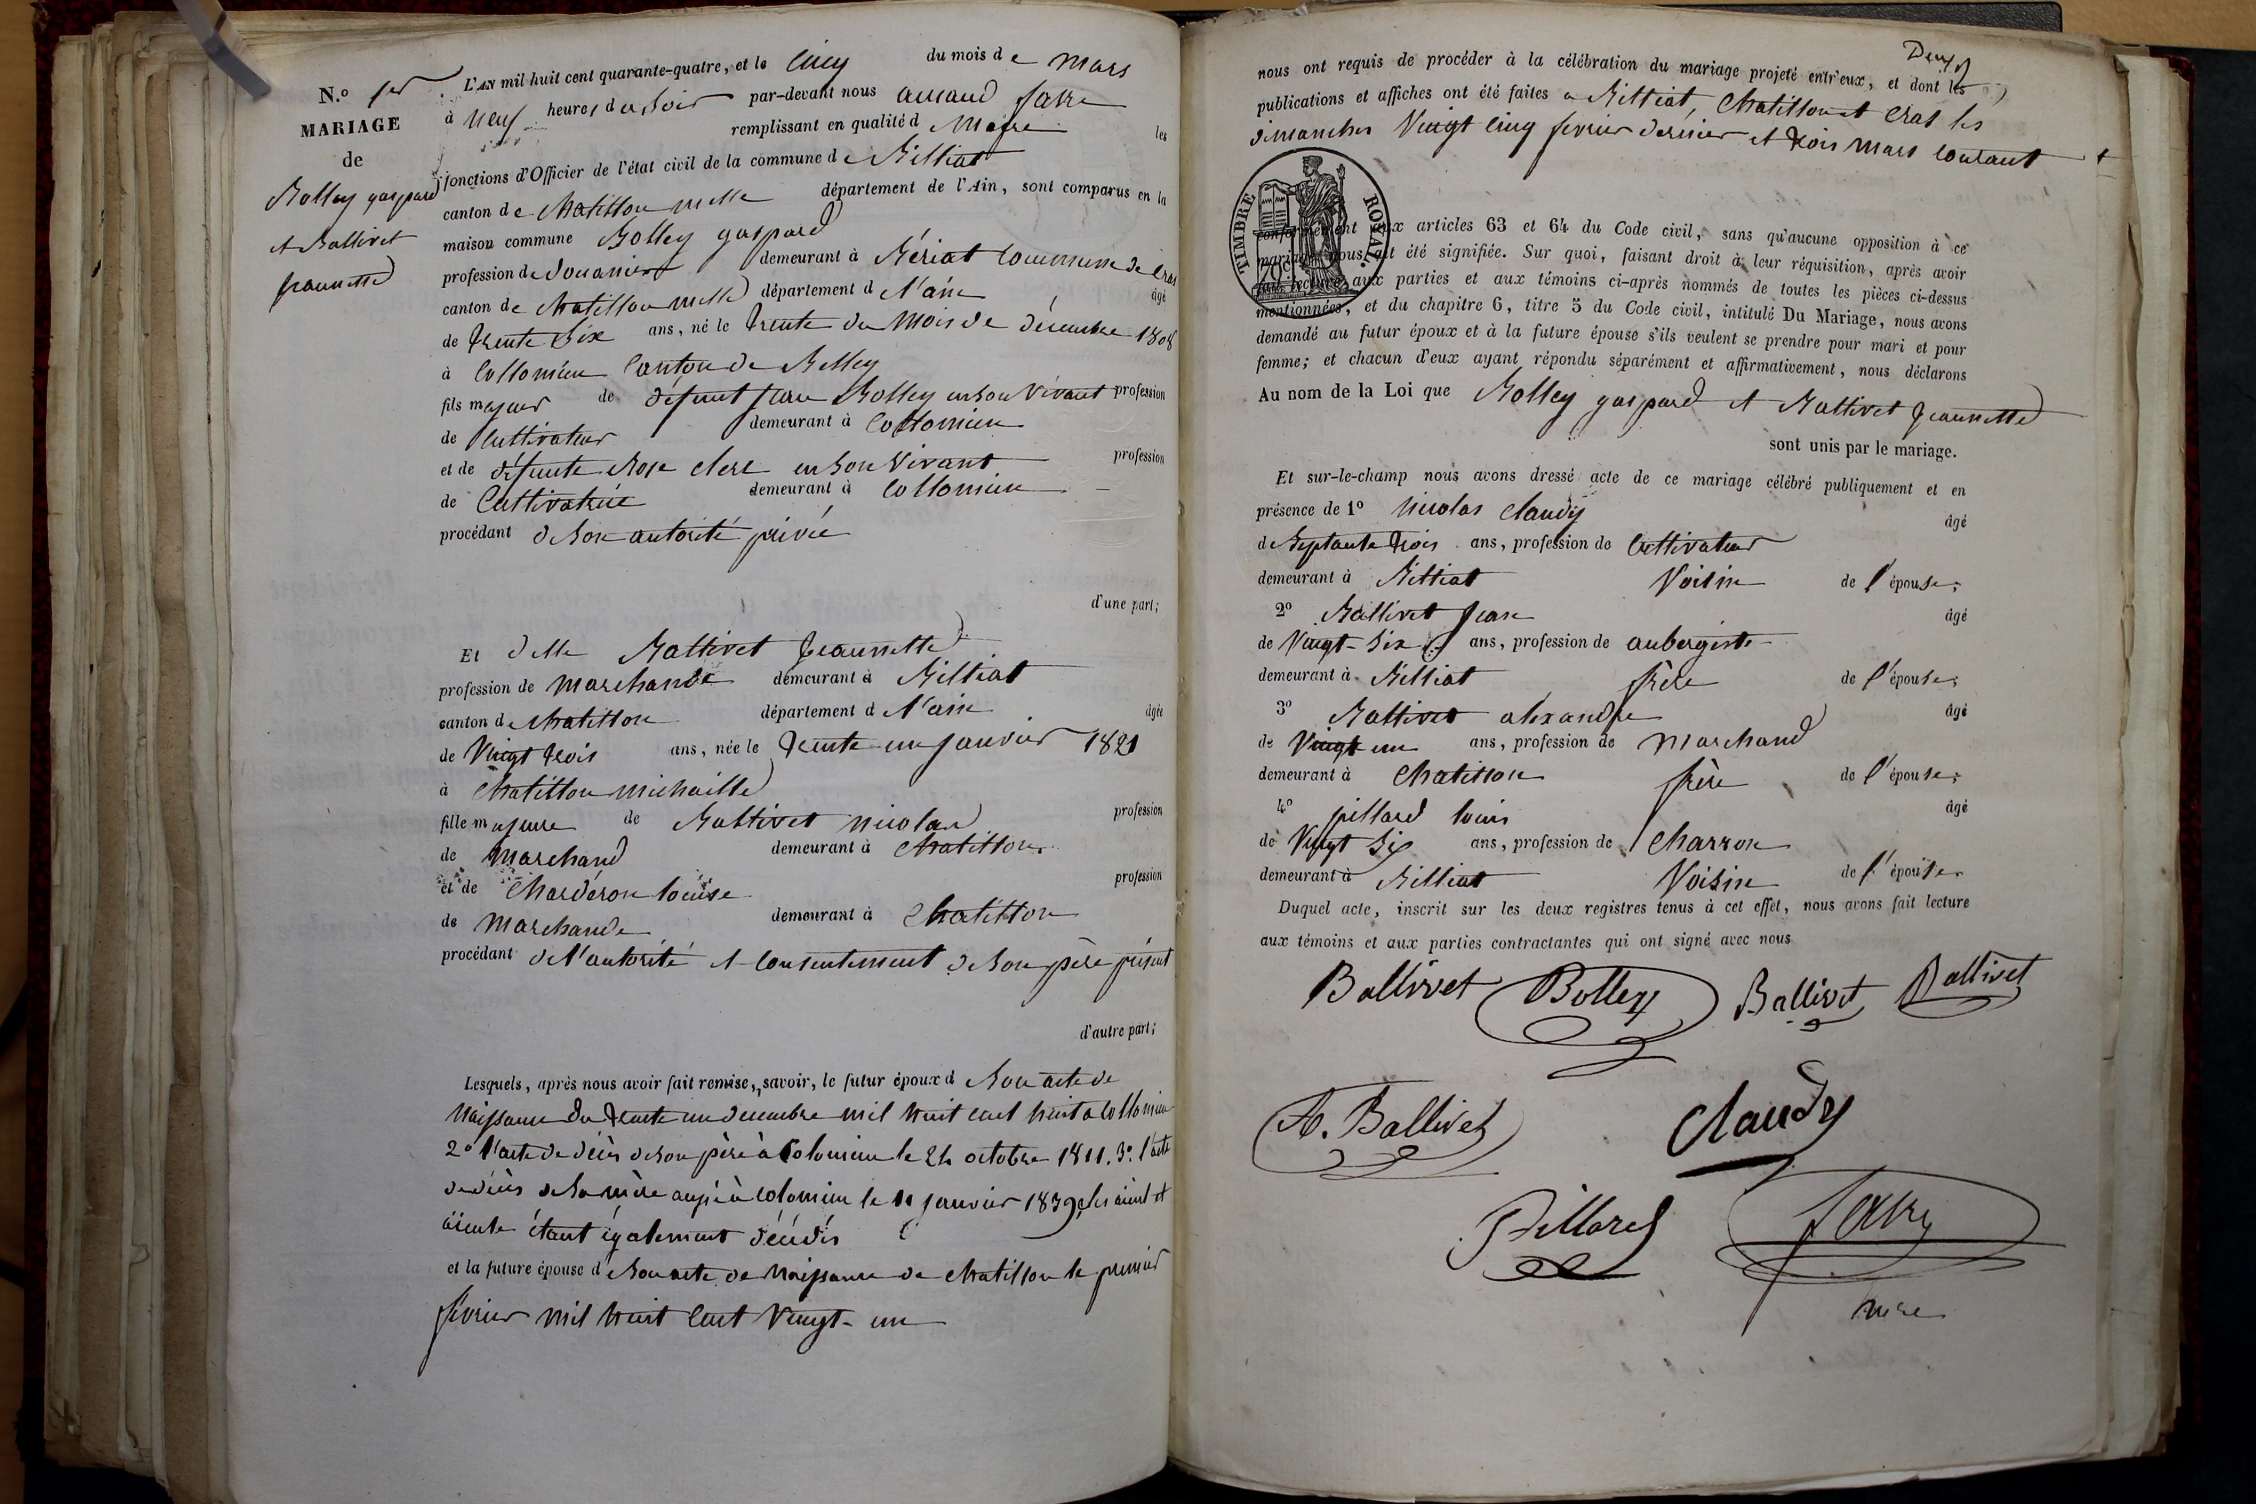 N.º 1er
MARIAGE
de
Bolley gaspard
et Ballivet
jeannette
L'AN mil huit cent quarante-quatre, et le cinq du mois de mars
à neuf heures du soir par-devant nous amand favre
remplissant en qualité d Maire les
fonctions d'Officier de l'état civil de la commune de Billiat
canton de Chatillon mlle département de l'Ain, sont comparus en la
maison commune Bolley gaspard
profession de Douanier demeurant à Bériat Commune de Cras
canton de chatillon mlle département d l'ain âgé
de trente six ans, né le trente du Mois de décembre 1808
à Collomieu Canton de Belley
fils majeur de défunt jean Bolley en son Vivant profession
de Cultivateur demeurant à Collomieu
et de défunte Rose clerc en son Vivant profession
de Cultivatrice demeurant à Collomieu
procédant de son autorité privée
d'une part;
Et delle Ballivet jeannette
profession de marchande demeurant à Billiat
canton de chatillon département d l'ain âgée
de Vingt trois ans, née le trente un janvier 1821
à Chatillon michaille
fille majeure de Ballivet nicolas profession
de marchand demeurant à Chatillon
et de Charderon louise profession
de marchande demeurant à Chatillon
procédant de l'autorité et consentement de son père présent
d'autre part;
Lesquels, après nous avoir fait remise, savoir, le futur époux d Son acte de
Naissance du trente un decembre mil huit cent huit a Collomieu
2º l'acte de décès de son père à Colomieu le 24 octobre 1811. 3º. l'acte
de décès de sa mère aussi à colomieu le 11 janvier 1839, les aieul et
aieule étant également décédés
et la future épouse d Son acte de Naissance de chatillon le premier
février mil huit cent Vingt-un
Deux
nous ont requis de procéder à la célébration du mariage projeté entr'eux, et dont les
publications et affiches ont été faites a Billiat, Chatillon et Cras les
dimanches Vingt cinq fevrier dernier et trois mars courant
TIMBRE ROYAL.
70c
conformément aux articles 63 et 64 du Code civil, sans qu'aucune opposition à ce
mariage nous ait été signifiée. Sur quoi, faisant droit à leur réquisition, après avoir
fait lecture aux parties et aux témoins ci-après nommés de toutes les pièces ci-dessus
mentionnées, et du chapitre 6, titre 5 du Code civil, intitulé Du Mariage, nous avons
demandé au futur époux et à la future épouse s'ils veulent se prendre pour mari et pour
femme; et chacun d'eux ayant répondu séparément et affirmativement, nous déclarons
Au nom de la Loi que Bolley gaspard et Ballivet jeannette
sont unis par le mariage.
Et sur-le-champ nous avons dressé acte de ce mariage célébré publiquement et en
présence de 1º nicolas claudy âgé
de Septante trois ans, profession de Cultivateur
demeurant à Billiat Voisin de l'épouse;
2º Ballivet jean âgé
de Vingt-Six ans, profession de aubergiste
demeurant à Billiat frère de l'épouse;
3º Ballivet alexandre âgé
de Vingt un ans, profession de marchand
demeurant à Chatillon frère de l'épouse;
4º pillard louis âgé
de Vingt Six ans, profession de Charron
demeurant à Billiat Voisin de l'épouse.
Duquel acte, inscrit sur les deux registres tenus à cet effet, nous avons fait lecture
aux témoins et aux parties contractantes qui ont signé avec nous
Ballivet Bolley Ballivet Ballivet
A. Ballivet Claudy
Pillard favre
mre